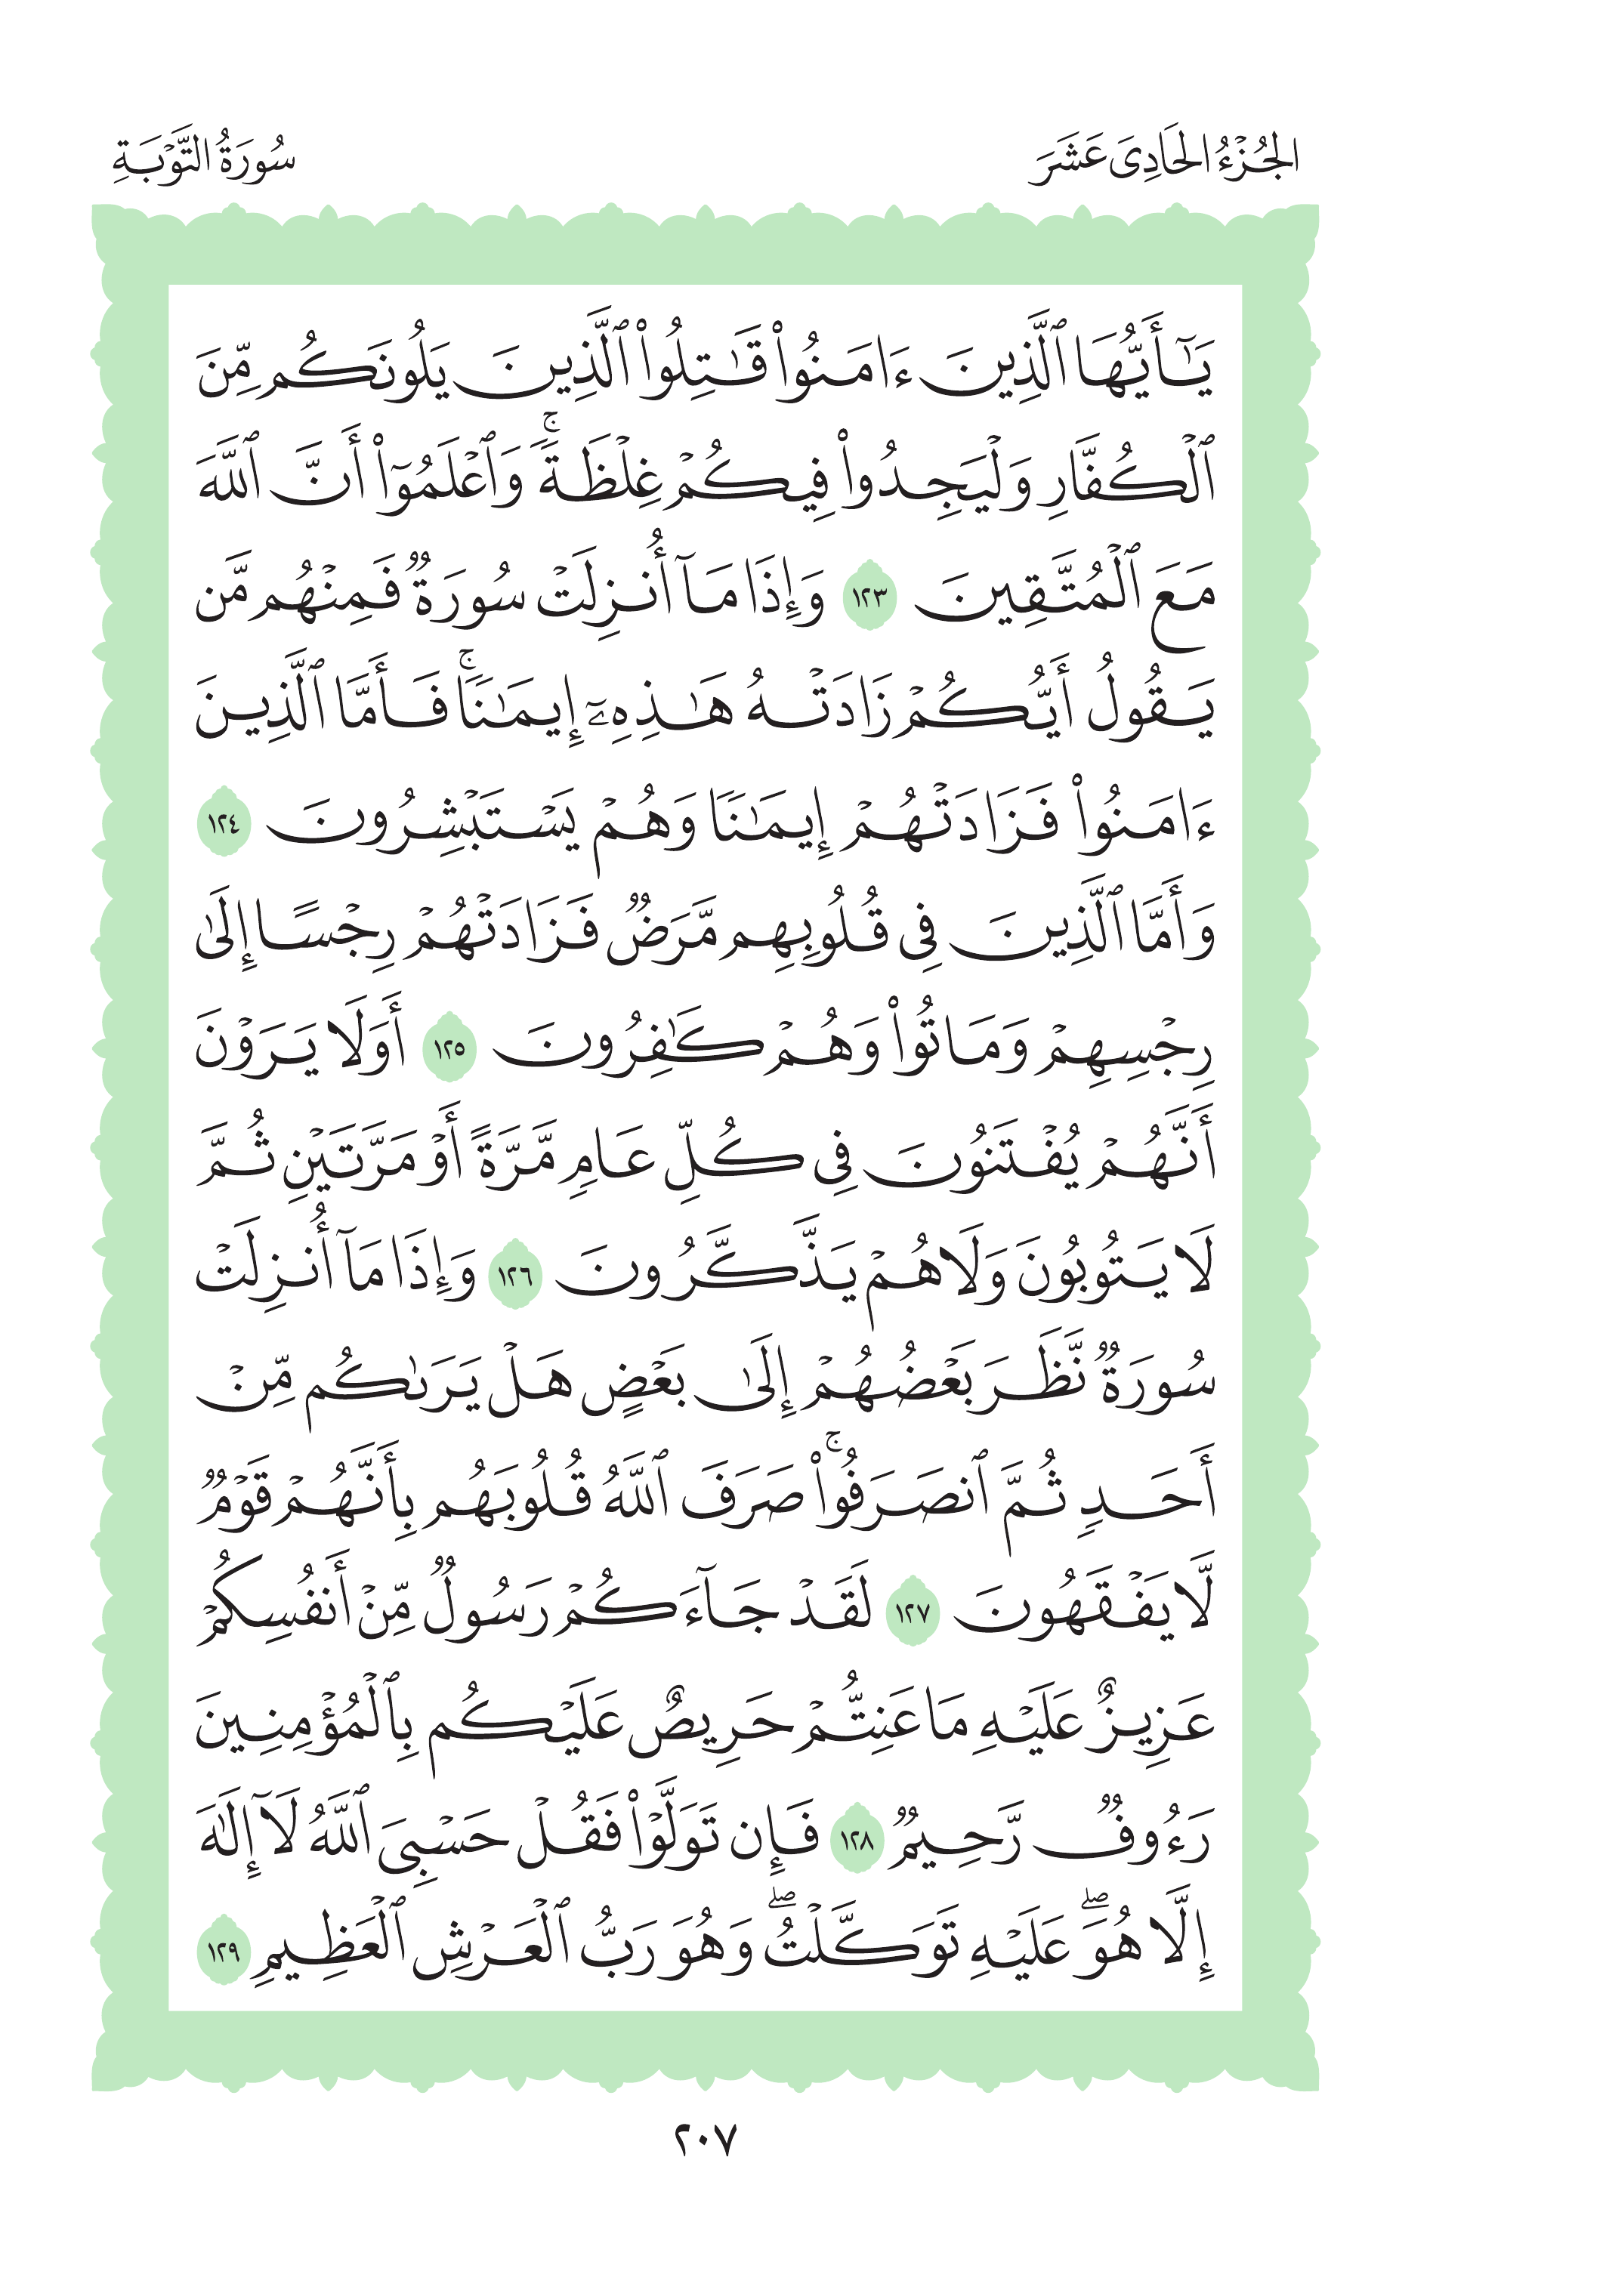 الجُزْءُ الحَادِىَ عَشَرَ
سُورَةُ التَّوْبَةِ
يَـٰٓأَيُّهَا ٱلَّذِينَ ءَامَنُوا۟ قَـٰتِلُوا۟ ٱلَّذِينَ يَلُونَكُم مِّنَ
ٱلْكُفَّارِ وَلْيَجِدُوا۟ فِيكُمْ غِلْظَةً ۚ وَٱعْلَمُوٓا۟ أَنَّ ٱللَّهَ
مَعَ ٱلْمُتَّقِينَ ١٢٣ وَإِذَا مَآ أُنزِلَتْ سُورَةٌ فَمِنْهُم مَّن
يَقُولُ أَيُّكُمْ زَادَتْهُ هَـٰذِهِۦٓ إِيمَـٰنًا ۚ فَأَمَّا ٱلَّذِينَ
ءَامَنُوا۟ فَزَادَتْهُمْ إِيمَـٰنًا وَهُمْ يَسْتَبْشِرُونَ ١٢٤
وَأَمَّا ٱلَّذِينَ فِى قُلُوبِهِم مَّرَضٌ فَزَادَتْهُمْ رِجْسًا إِلَىٰ
رِجْسِهِمْ وَمَاتُوا۟ وَهُمْ كَـٰفِرُونَ ١٢٥ أَوَلَا يَرَوْنَ
أَنَّهُمْ يُفْتَنُونَ فِى كُلِّ عَامٍ مَّرَّةً أَوْ مَرَّتَيْنِ ثُمَّ
لَا يَتُوبُونَ وَلَا هُمْ يَذَّكَّرُونَ ١٢٦ وَإِذَا مَآ أُنزِلَتْ
سُورَةٌ نَّظَرَ بَعْضُهُمْ إِلَىٰ بَعْضٍ هَلْ يَرَىٰكُم مِّنْ
أَحَدٍ ثُمَّ ٱنصَرَفُوا۟ ۚ صَرَفَ ٱللَّهُ قُلُوبَهُم بِأَنَّهُمْ قَوْمٌ
لَّا يَفْقَهُونَ ١٢٧ لَقَدْ جَآءَكُمْ رَسُولٌ مِّنْ أَنفُسِكُمْ
عَزِيزٌ عَلَيْهِ مَا عَنِتُّمْ حَرِيصٌ عَلَيْكُم بِٱلْمُؤْمِنِينَ
رَءُوفٌ رَّحِيمٌ ١٢٨ فَإِن تَوَلَّوْا۟ فَقُلْ حَسْبِىَ ٱللَّهُ لَآ إِلَـٰهَ
إِلَّا هُوَ ۖ عَلَيْهِ تَوَكَّلْتُ ۖ وَهُوَ رَبُّ ٱلْعَرْشِ ٱلْعَظِيمِ ١٢٩
٢٠٧